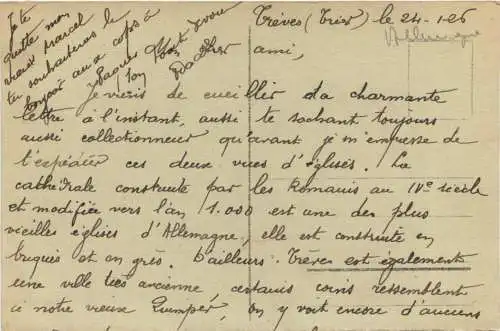 Trèves (Trier) le 24-1-26
Allemagne
ami,
Je viens de cueillir ta charmante
lettre à l'instant, aussi te sachant toujours
aussi collectionneur qu'avant je m'empresse de
t'expédier ces deux vues d'églises. La
cathédrale construite par les Romains au IVe siècle
et modifiée vers l'an 1.000 est une des plus
vieilles églises d'Allemagne, elle est construite en
briques et en grès. D'ailleurs Trèves est également
une ville très ancienne, certains coins ressemblent
à notre vieux Quimper, on y voit encore d'anciens
Je te
quitte mon
vieux Marcel
tu souhaiteras le
bonjour aux copos à
Jacques
Ton